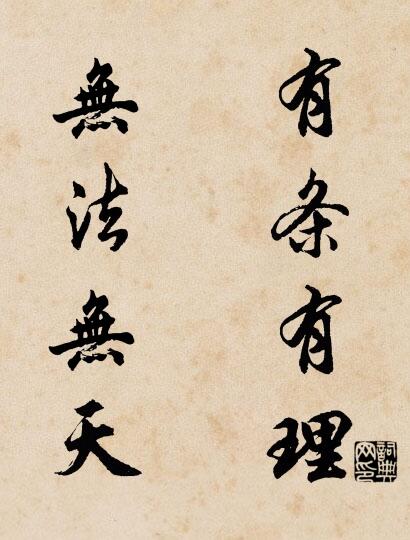 有条有理
無法無天
詞典网印